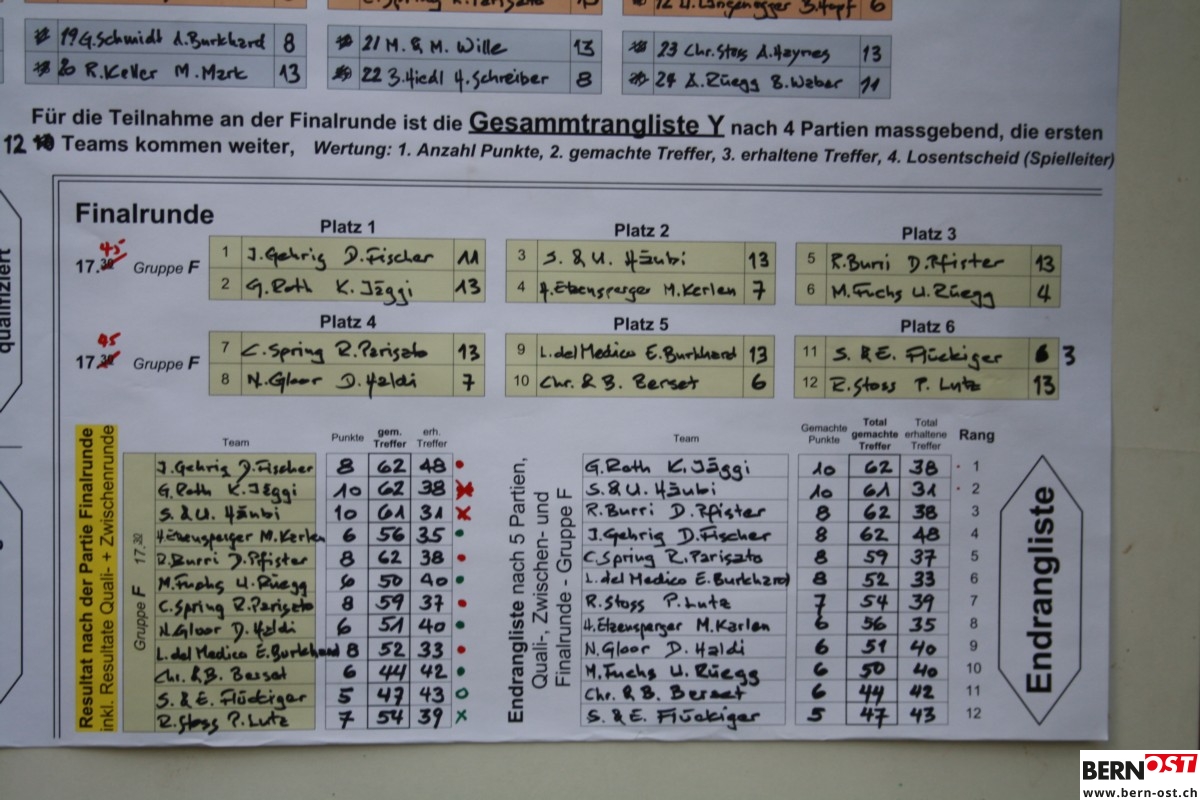 13
12 6
19 G. Schmidt A. Burkhard 8
20 R. Keller M. Mark 13
21 M. & M. Wille 13
22 B. Hiedl H. Schreiber 8
23 Chr. Stoss A. Haynes 13
24 A. Rüegg B. Weber 11
Für die Teilnahme an der Finalrunde ist die Gesammtrangliste Y nach 4 Partien massgebend, die ersten
12 Teams kommen weiter, Wertung: 1. Anzahl Punkte, 2. gemachte Treffer, 3. erhaltene Treffer, 4. Losentscheid (Spielleiter)
qualifiziert
Finalrunde
Platz 1
Platz 2
Platz 3
17.45 Gruppe F
1 J. Gehrig D. Fischer 11
2 G. Roth K. Jäggi 13
3 S. & U. Häubi 13
4 H. Etzensperger M. Kerlen 7
5 R. Burri D. Pfister 13
6 M. Fuchs U. Rüegg 4
Platz 4
Platz 5
Platz 6
17.45 Gruppe F
7 C. Spring R. Parisato 13
8 N. Gloor D. Haldi 7
9 L. del Medico E. Burkhard 13
10 Chr. & B. Berset 6
11 S. & E. Flückiger 3
12 R. Stoss P. Lutz 13
Resultat nach der Partie Finalrunde
inkl. Resultate Quali- + Zwischenrunde
Gruppe F 17.30
Team Punkte gem. Treffer erh. Treffer
J. Gehrig D. Fischer 8 62 48
G. Roth K. Jäggi 10 62 38
S. & U. Häubi 10 61 31
H. Etzensperger M. Kerlen 6 56 35
R. Burri D. Pfister 8 62 38
M. Fuchs U. Rüegg 6 50 40
C. Spring R. Parisato 8 59 37
N. Gloor D. Haldi 6 51 40
L. del Medico E. Burkhard 8 52 33
Chr. & B. Berset 6 44 42
S. & E. Flückiger 5 47 43
R. Stoss P. Lutz 7 54 39
Endrangliste nach 5 Partien,
Quali-, Zwischen- und
Finalrunde - Gruppe F
Team Gemachte Punkte Total gemachte Treffer Total erhaltene Treffer Rang
G. Roth K. Jäggi 10 62 38 1
S. & U. Häubi 10 61 31 2
R. Burri D. Pfister 8 62 38 3
J. Gehrig D. Fischer 8 62 48 4
C. Spring R. Parisato 8 59 37 5
L. del Medico E. Burkhard 8 52 33 6
R. Stoss P. Lutz 7 54 39 7
H. Etzensperger M. Karlen 6 56 35 8
N. Gloor D. Haldi 6 51 40 9
M. Fuchs U. Rüegg 6 50 40 10
Chr. & B. Berset 6 44 42 11
S. & E. Flückiger 5 47 43 12
Endrangliste
BERNOST
www.bern-ost.ch